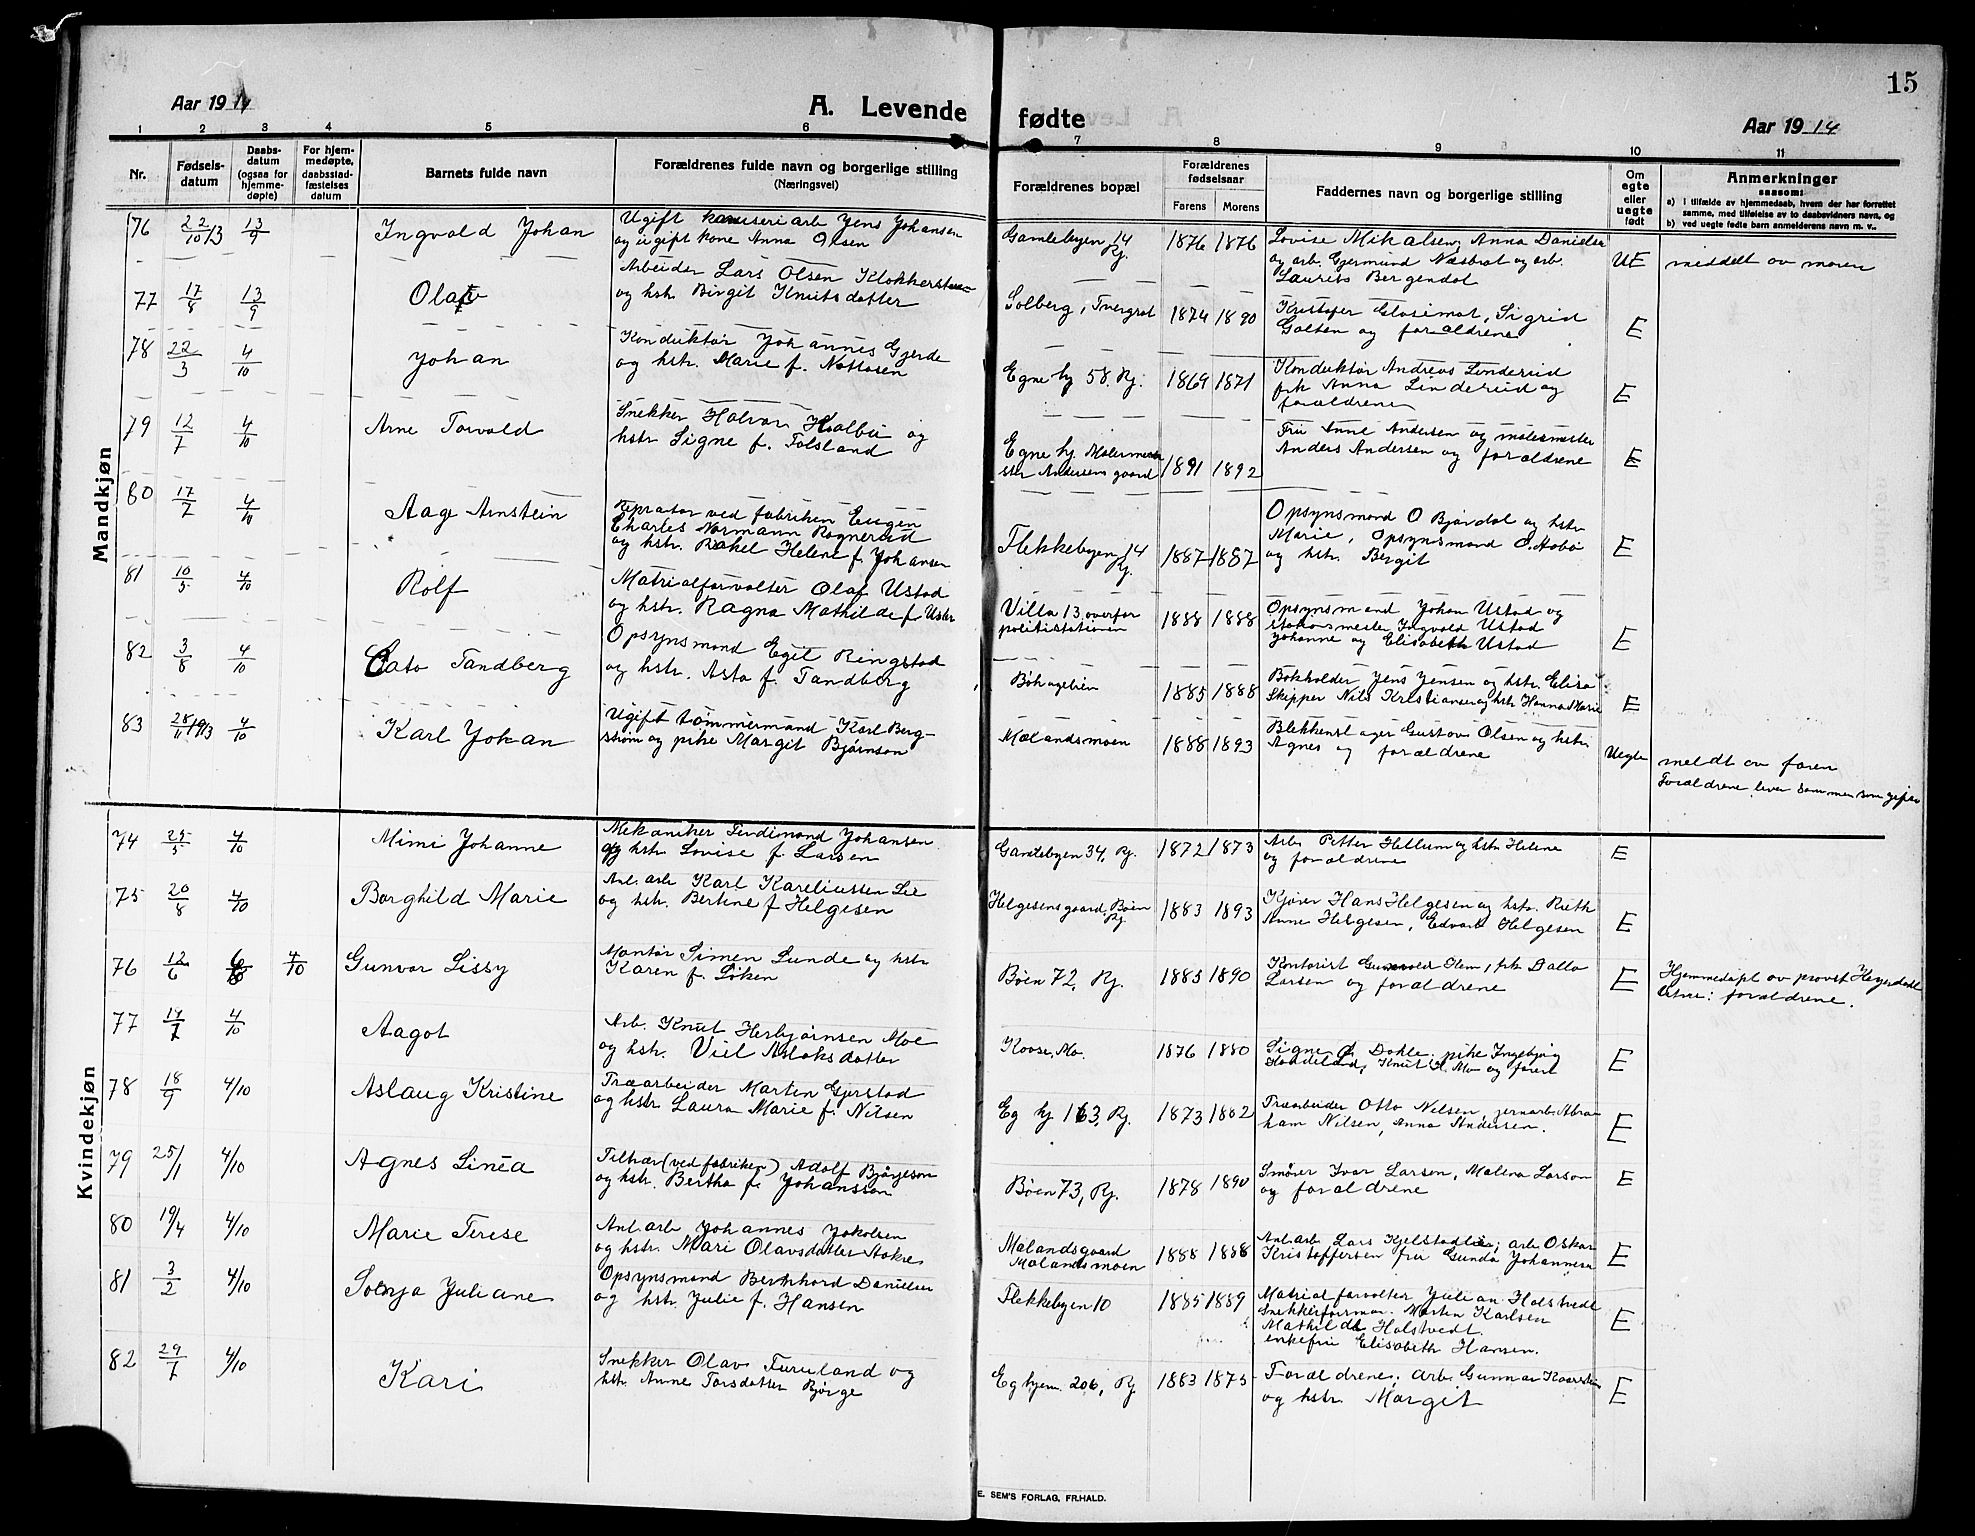 15
Aar 1914
A. Levende fødte
Aar 1914
1 2 3 4 5 6 7 8 9 10 11
Nr.
Fødsels-
datum
Daabs-
datum
(ogsaa for
hjemme-
døpte)
For hjem-
medøpte,
daabsstad-
fæstelses
datum
Barnets fulde navn
Forældrenes fulde navn og borgerlige stilling
(Næringsvei)
Forældrenes bopæl
Forældrenes
fødselsaar
Farens Morens
Faddernes navn og borgerlige stilling
Om
egte
eller
uegte
født
Anmerkninger
saasom:
a) i tilfælde av hjemmedaab, hvem der har forrettet
samme, med tilføielse av to daabsvidners navn, og
b) ved uegte fødte barn anmelderens navn m. v.
Mandkjøn
76 22/10 13 13/9 Ingvald Johan
Ugift arb Jens Johansen
og ugift kone Anna Olsen
Gamlebyen 14
Rj.
1876 1876
Lovise Mikalsen, Anna Danielsen
og arb. Gjermund Næsbøt og arb.
Laurits Bergendal
UE
meddelt av moren
77 17/8 13/9 Olav
Arbeider Lars Olsen Klokkerstuen
og hstr. Birgit Knutsdatter
Solberg, Tvergrot
1874 1890
Kristofer Closimot, Sigrid
Golsen og forældrene
E
78 22/3 4/10 Johan
Konduktør Johannes Gjerde
og hstr. Marie f. Nottosen
Egne hj 58. Rj.
1869 1871
Konduktør Andreas Linderud
frk Anna Linderud og
forældrene
E
79 12/7 4/10 Arne Torvald
Snekker Halvor Holbu og
hstr Signe f. Tolsland
Egne hj. Malerme-
ster Andersens gaard
1891 1892
Fru Anne Andersen og malermester
Anders Andersen og forældrene
E
80 17/7 4/10 Aage Arnstein
Reprator ved fabriken Eugen
Charles Normann Rognerud
og hstr. Rakel Helene f. Johansen
Flekkebyen 14
Rj.
1887 1887
Opsynsmand O Bjørdal og hstr
Marie, Opsynsmand O. Hobø
og hstr. Bergit
E
81 10/5 4/10 Rolf
Matrialforvalter Olaf Ustad
og hstr. Ragna Mathilde f. Uster
Villa 13 overfor
politistationen
1888 1888
Opsynsmand Johan Ustad og
stationsmester Ingvald Ustad
Johanne og Elisabeth Ustad
E
82 3/8 4/10 Cato Tandberg
Opsynsmand Egil Ringstad
og hstr. Asta f. Tandberg
Bøhagebien
1885 1888
Bokholder Jens Jensen og hstr. Elisa
Skipper Nils Kristiansen og hstr Hanna Marie
E
83 28/11 1913 4/10 Karl Johan
Ugift tømmermand Karl Berg-
strøm og pike Margit Bjørnson
Mælandsmoen
1888 1893
Blekkenslager Gustav Olsen og hstr
Agnes og forældrene
Uegte
meldt av faren
Forældrene lever sammen som gifte
Kvindekjøn
74 25/5 4/10 Mimi Johanne
Mekaniker Ferdinand Johansen
og hstr. Lovise f. Larsen
Gamlebyen 34, Rj.
1872 1873
Arb. Petter Hellum og hstr Helene
og forældrene
E
75 20/8 4/10 Borghild Marie
Anl. arb Karl Kareliussen Lie
og hstr. Bertine f Helgesen
Helgesens gaard, Bøen
Rj.
1883 1893
Kjører Hans Helgesen og hstr. Rieth
Anne Helgesen, Edvart Helgesen
E
76 12/6 6/8 4/10 Gunvor Lissy
Montør Simen Lunde og hstr
Karen f. Løken
Bøen 72, Rj.
1885 1890
Kontorist Gunvald Hem, frk Dalla
Larsen og forældrene
E
Hjemmedøpt av provst Heyerdahl
Vitne: forældrene.
77 14/7 4/10 Aagot
Arb. Knut Herbjørnsen Moe
og hstr. Viel Aslaksdatter
Kosse, Mo.
1876 1880
Signe O. Dokle, pike Ingebjørg
Knut H. Mo og foreld
E
78 18/9 4/10 Aslaug Kristine
Træarbeider Marten Gjerstad
og hstr Laura Marie f. Nilsen
Eg hj 163, Rj.
1873 1882
Træarbeider Otto Nilsen, jernarb. Abra-
ham Nilsen, Anna Andersen.
E
79 25/1 4/10 Agnes Linéa
Tilhær (ved fabriken) Adolf Bjørgeson
og hstr. Bertha f. Johansson
Bøen 73, Rj.
1878 1890
Smører Ivar Larsen, Malena Larson
og forældrene
E
80 19/4 4/10 Marie Terese
Anl. arb Johannes Jokolsen
og hstr. Mari Olavsdatter Aakre
Mælandsgaard
Mælandsmoen
1888 1888
Anl. arb Lars Kjelstadlie; arb Oskar
Kristoffersen fru Gunda Johannesen
E
81 3/2 4/10 Solnja Juliane
Opsynsmand Bernhard Danielsen
og hstr. Julie f. Hansen
Flekkebyen 10
1885 1889
Matrialforvalter Julian Holstvedt
Snekkerforman. Morten Karlsen
Mathilde Holstvedt.
enkefru Elisabeth Hansen.
E
82 29/7 4/10 Kari
Snekker Olav Fururland og
hstr. Anne Torsdatter Bjørge
Eg hjem. 206, Rj
1883 1875
Forældrene, arb. Gunnar Kaarstein
og hstr. Margit
E
E. SEM'S FORLAG, FR.HALD.